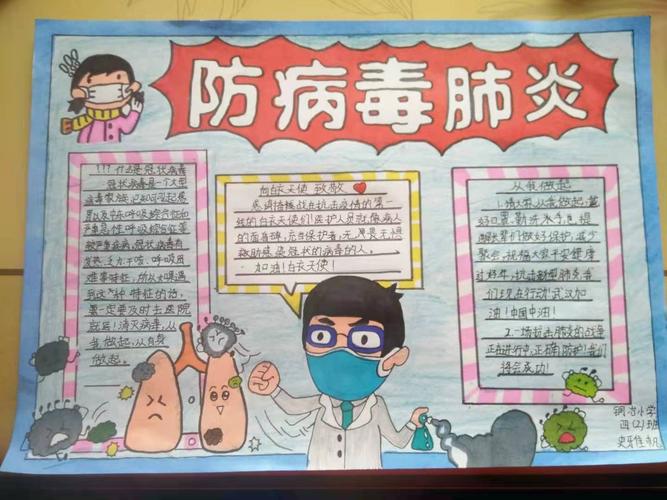 防病毒肺炎
???什么是冠状病毒
冠状病毒是一个大型
病毒家族,已知可引起感
冒以及中东呼吸综合征和
严重急性呼吸综合征等
较严重疾病,冠状病毒有
发热、乏力、干咳、呼吸困
难等特征,所以大家遇
到这个种特征的话,
要一定要及时去医院
就医!消灭病毒,从
我做起,从自身
做起。
向白衣天使 致敬
感谢捨挨战在抗击疫情的第一
线的白衣天使们!医护人员就像病人
的面身碑,充当保护者,无畏无惧
救助感染冠状的病毒的人。
加油!白衣天使!
从我做起
1.请大家从我做起,戴
好口罩、勤洗水手,也提
醒长辈们做好保护,减少
聚会,祝福大家平安健康
过好年,抗击新型肺炎,我
们现在行动!武汉加
油!中国中油!
2.一场抗击肺炎的战争
正在进行中,正确防护!我们
将会成功!
铜冶小学
四(2)班
史牙佳凡